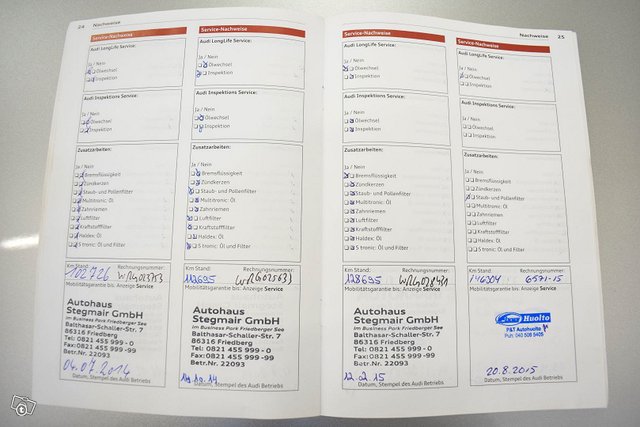 24 Nachweise
Service-Nachweise
Audi LongLife Service:
Ja / Nein
Ölwechsel
Inspektion
Audi Inspektions Service:
Ja / Nein
Ölwechsel
Inspektion
Zusatzarbeiten:
Ja / Nein
Bremsflüssigkeit
Zündkerzen
Staub- und Pollenfilter
Multitronic: Öl
Zahnriemen
Luftfilter
Kraftstofffilter
Haldex: Öl
S tronic: Öl und Filter
Km Stand: Rechnungsnummer:
102726
Mobilitätsgarantie bis: Anzeige Service
Autohaus
Stegmair GmbH
im Business Park Friedberger See
Balthasar-Schaller-Str. 7
86316 Friedberg
Tel: 0821 455 999 - 0
Fax: 0821 455 999 -99
Betr.Nr. 22093
04.07.2014
Datum, Stempel des Audi Betriebs
Service-Nachweise
Audi LongLife Service:
Ja / Nein
Ölwechsel
Inspektion
Audi Inspektions Service:
Ja / Nein
Ölwechsel
Inspektion
Zusatzarbeiten:
Ja / Nein
Bremsflüssigkeit
Zündkerzen
Staub- und Pollenfilter
Multitronic: Öl
Zahnriemen
Luftfilter
Kraftstofffilter
Haldex: Öl
S tronic: Öl und Filter
Km Stand: Rechnungsnummer:
Mobilitätsgarantie bis: Anzeige Service
Autohaus
Stegmair GmbH
im Business Park Friedberger See
Balthasar-Schaller-Str. 7
86316 Friedberg
Tel: 0821 455 999 - 0
Fax: 0821 455 999 -99
Betr.Nr. 22093
Datum, Stempel des Audi Betriebs
Nachweise 25
Service-Nachweise
Audi LongLife Service:
Ja / Nein
Ölwechsel
Inspektion
Audi Inspektions Service:
Ja / Nein
Ölwechsel
Inspektion
Zusatzarbeiten:
Ja / Nein
Bremsflüssigkeit
Zündkerzen
Staub- und Pollenfilter
Multitronic: Öl
Zahnriemen
Luftfilter
Kraftstofffilter
Haldex: Öl
S tronic: Öl und Filter
Km Stand: Rechnungsnummer:
128695
Mobilitätsgarantie bis: Anzeige Service
Autohaus
Stegmair GmbH
im Business Park Friedberger See
Balthasar-Schaller-Str. 7
86316 Friedberg
Tel: 0821 455 999 - 0
Fax: 0821 455 999 -99
Betr.Nr. 22093
12 02 15
Datum, Stempel des Audi Betriebs
Service-Nachweise
Audi LongLife Service:
Ja / Nein
Ölwechsel
Inspektion
Audi Inspektions Service:
Ja / Nein
Ölwechsel
Inspektion
Zusatzarbeiten:
Ja / Nein
Bremsflüssigkeit
Zündkerzen
Staub- und Pollenfilter
Multitronic: Öl
Zahnriemen
Luftfilter
Kraftstofffilter
Haldex: Öl
S tronic: Öl und Filter
Km Stand: Rechnungsnummer:
146304 6571-15
Mobilitätsgarantie bis: Anzeige Service
Huolto
P&T Autohuolto
20.8.2015
Datum, Stempel des Audi Betriebs